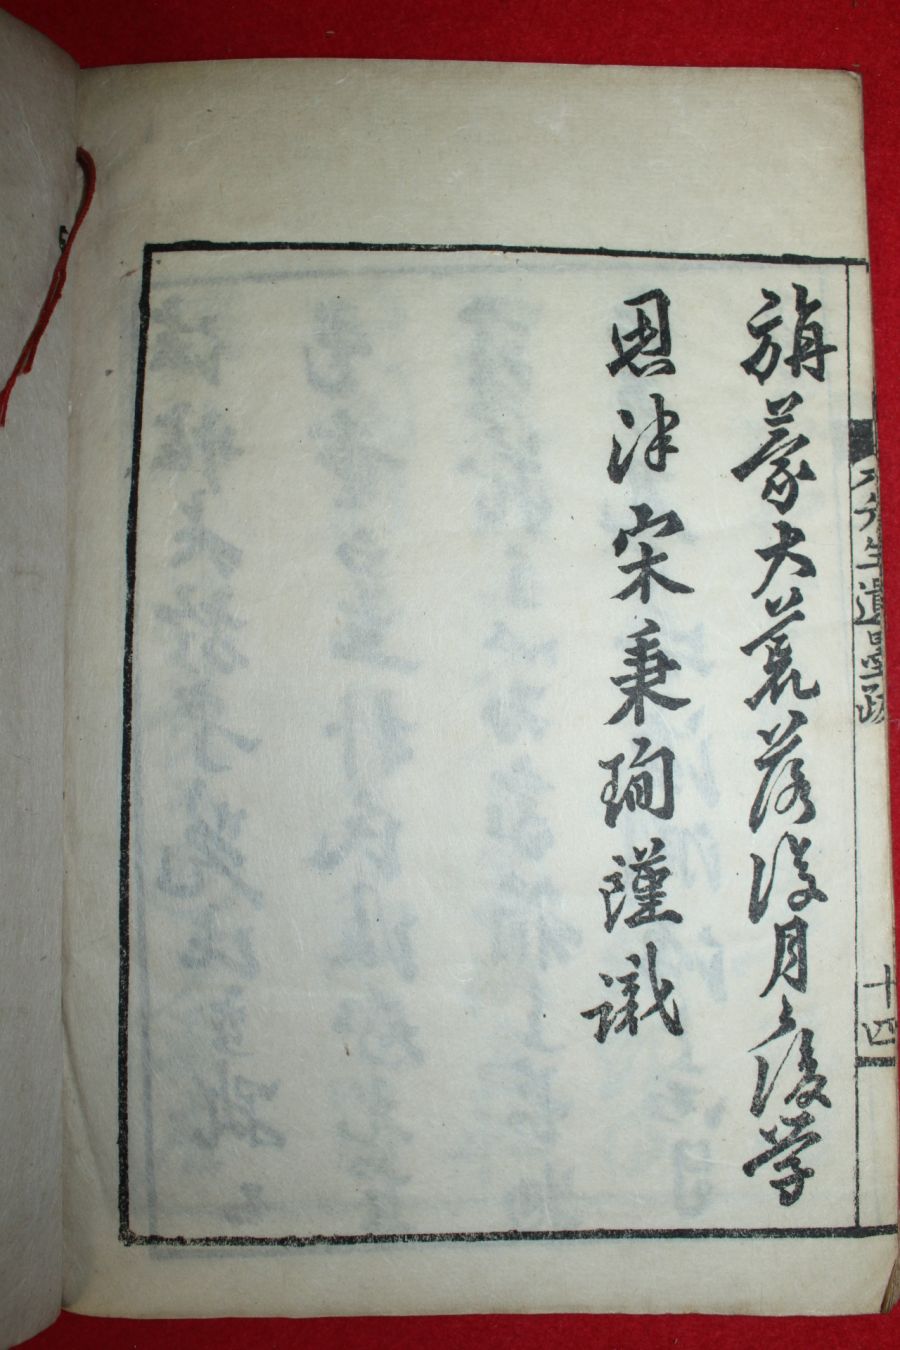 旃蒙大荒落涂月上浣後學
恩津宋秉珣謹識
先生遺墨跋
十四